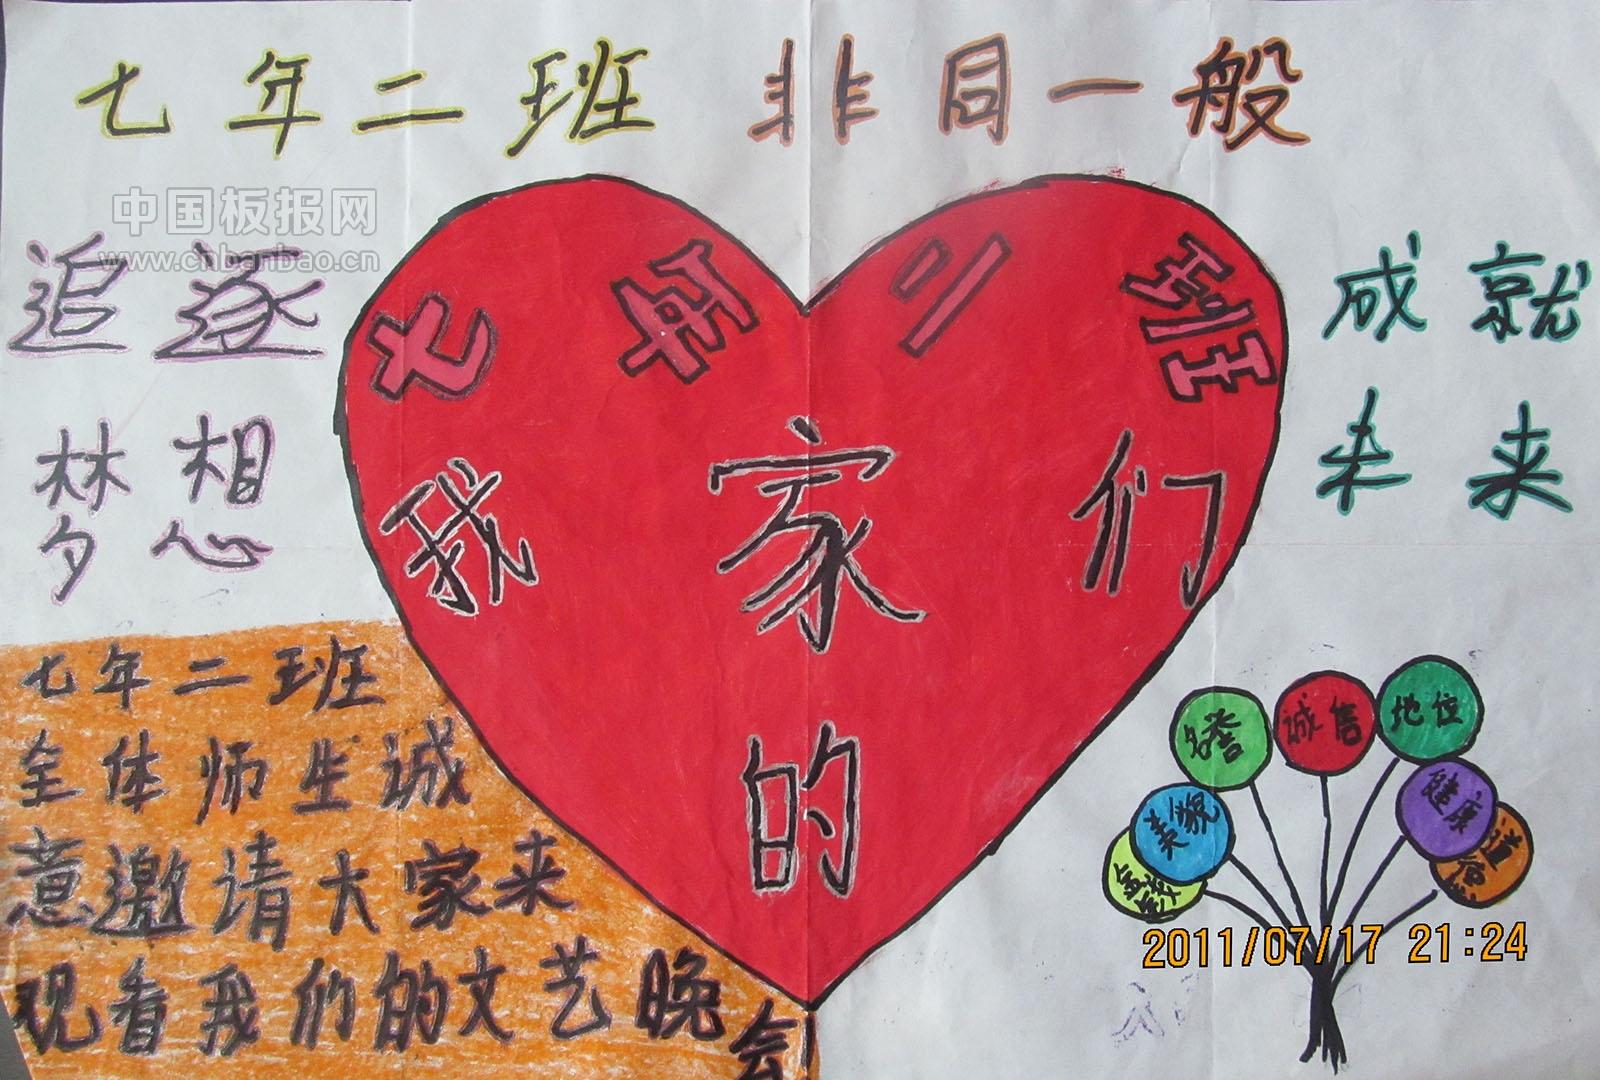 七年二班 非同一般
中国板报网
www.cnbanbao.cn
追逐
梦想
七年二班
我们
的家
成就
未来
七年二班
全体师生诚
意邀请大家来
观看我们的文艺晚
会!
名誉
诚信
地位
美貌
健康
金钱
道德
2011/07/17 21:24